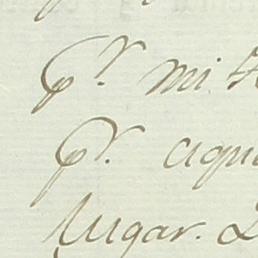 pr. mi
pr. aqui
lugar.